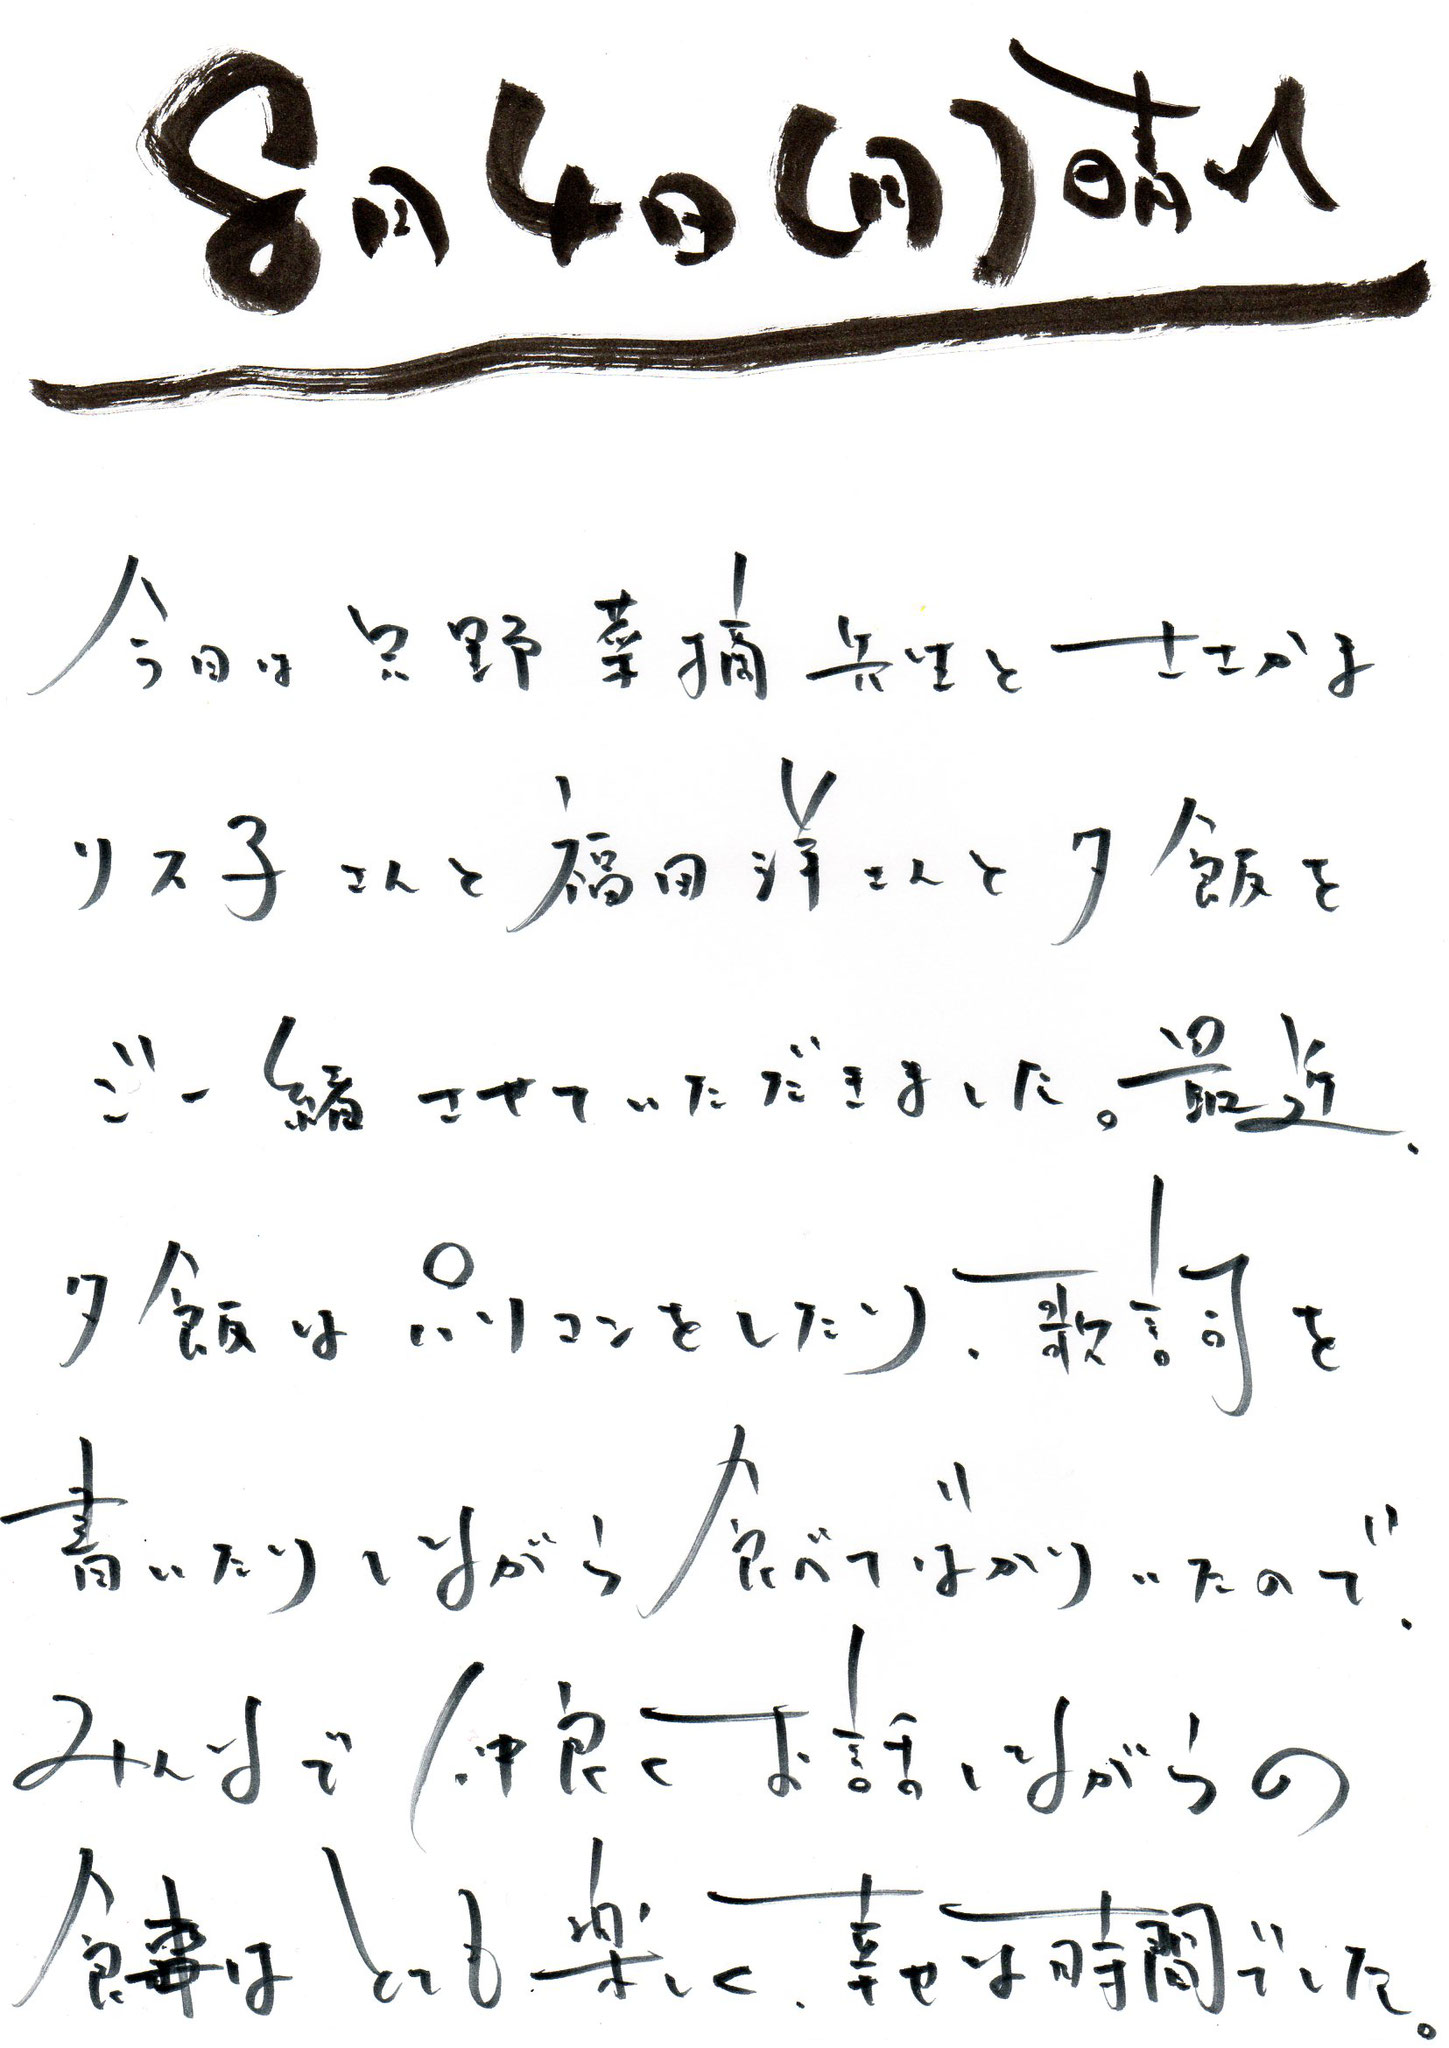 8月4日(月)晴れ
今日は只野菜摘先生とささかま
リス子さんと福田洋さんと夕飯を
ご一緒させていただきました。最近、
夕飯はパソコンをしたり、歌詞を
書いたりしながら食べてばかりいたので、
みんなで仲良くお話しながらの
食事はとても楽しく、幸せな時間でした。